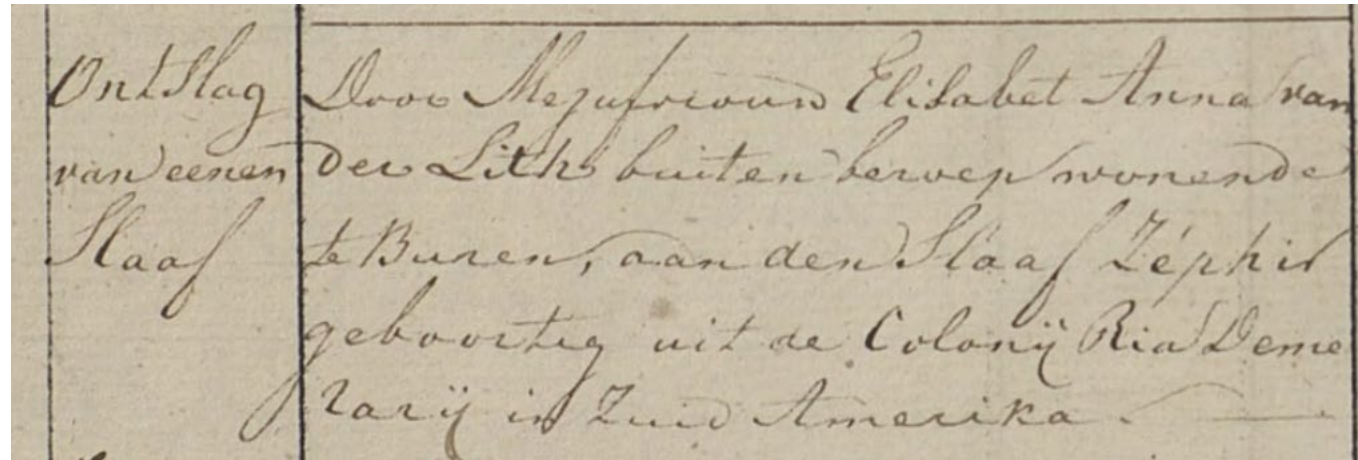 Ontslag
van eenen
Slaaf
Door Mejufvrouw Elisabet Anna van
der Lith buiten beroep wonende
te Buren, aan den Slaaf Zéphir
geboortig uit de Colonij Rio Deme
rarij in Zuid Amerika.